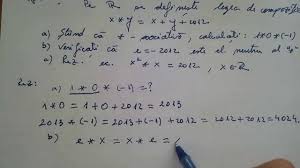 Pe ℝ se definește legea de compoziție
x * y = x + y + 2012.
a) Știind că * - asociativă, calculați: 1*0*(-1)
b) Verificați că e = -2012 este el. neutru al
c) Rez. ec. x * x = 2012, x ∈ ℝ
Rez: a) 1 * 0 * (-1) = ?
1 * 0 = 1 + 0 + 2012 = 2013
2013 * (-1) = 2013 + (-1) + 2012 = 2012 + 2012 = 4024.
b) e * x = x * e =